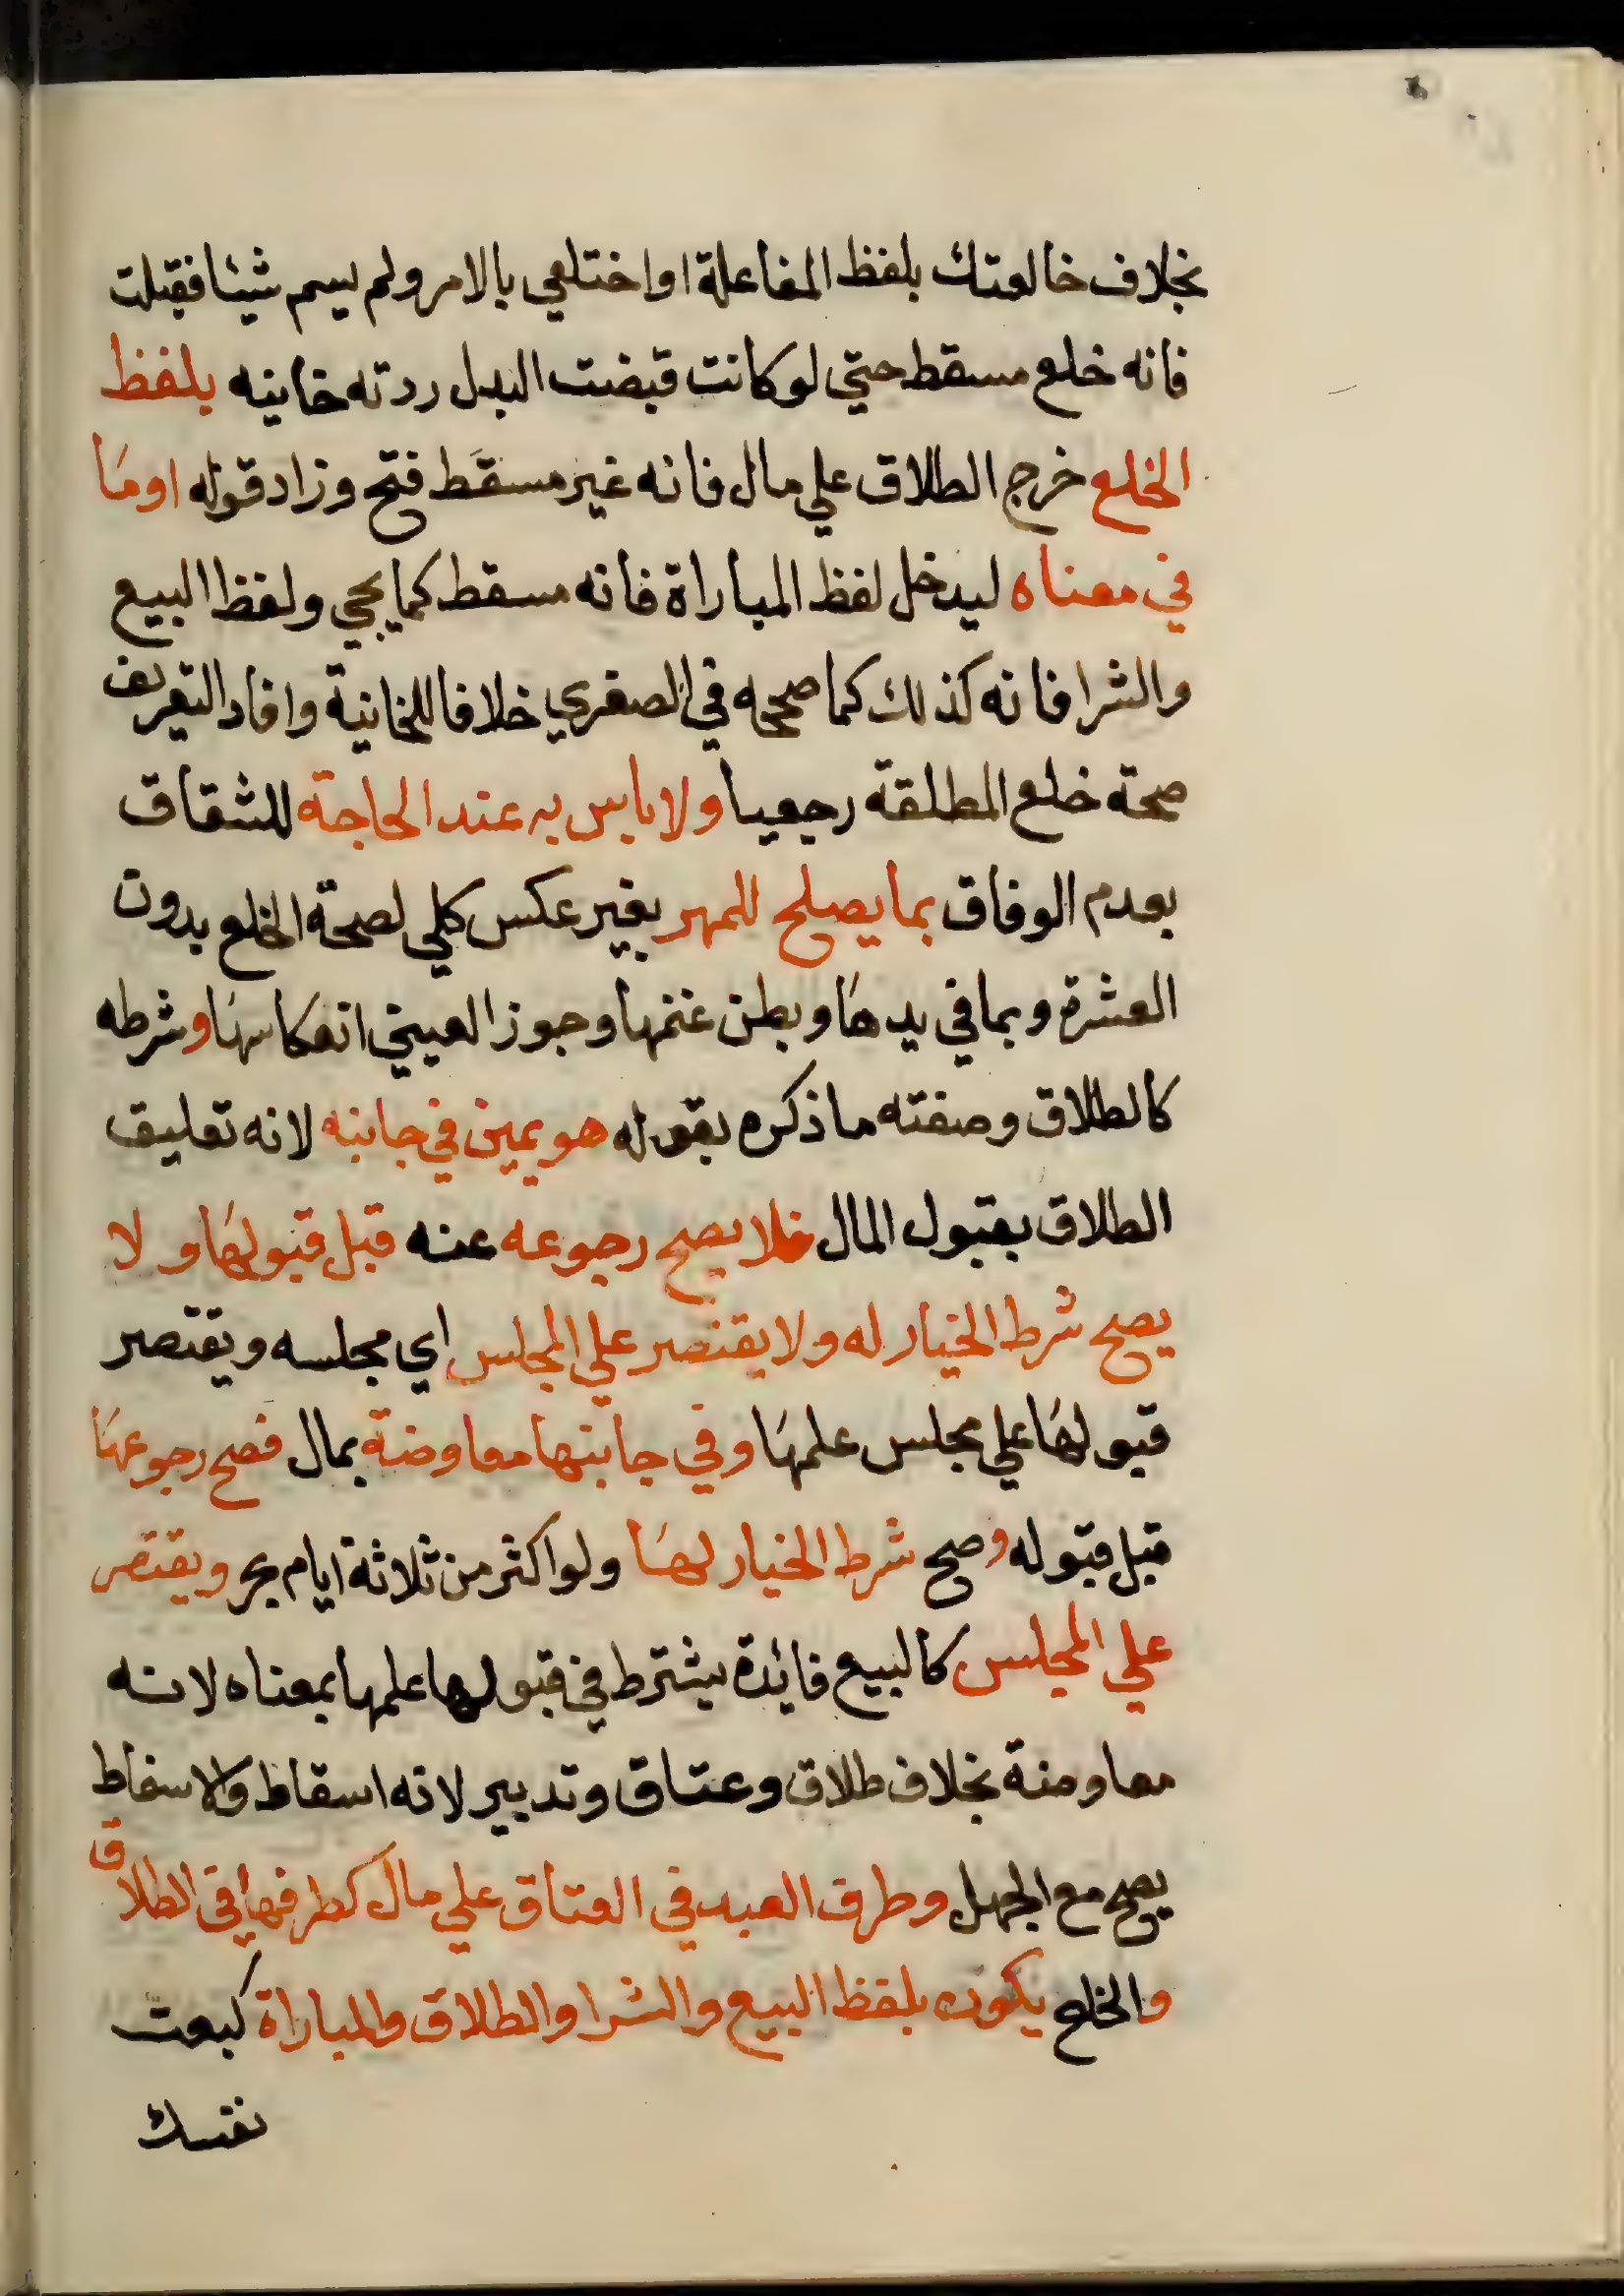 بخلاف خالعتك بلفظ المفاعلة او اختلعي بالامر ولم يسم شيئا فقبلت
فانه خلع مسقط حتي لو كانت قبضت البدل ردته خانيه بلفظ
الخلع خرج الطلاق علي مال فانه غير مسقط فتح وزاد قوله او ما
في معناه ليدخل لفظ المباراة فانه مسقط كما يجي ولفظ البيع
والشرا فانه كذلك كما صححه في الصغري خلافا للخانية وافاد التعريف
صحة خلع المطلقة رجعيا ولا باس به عند الحاجة للشقاق
بعدم الوفاق بما يصلح للمهر بغير عكس كلي لصحة الخلع بدون
العشرة وبما في يدها وبطن غنمها وجوز العيني انعكاسها وشرطه
كالطلاق وصفته ما ذكره بقوله هو يمين في جانبه لانه تعليق
الطلاق بقبول المال فلا يصح رجوعه عنه قبل قبولها ولا
يصح شرط الخيار له ولا يقتصر علي المجلس اي مجلسه ويقتصر
قبولها علي مجلس علمها وفي جانبها معاوضة بمال فصح رجوعها
قبل قبوله وصح شرط الخيار لها ولو اكثر من ثلاثة ايام بحر ويقتصر
علي المجلس كالبيع فائدة يشترط في قبولها علمها بمعناه لانه
معاوضة بخلاف طلاق وعتاق وتدبير لانه اسقاط والاسقاط
يصح مع الجهل وطرف العبد في العتاق علي مال كطرفها في الطلاق
والخلع يكون بلفظ البيع والشرا والطلاق والمباراة كبعت
نفسك